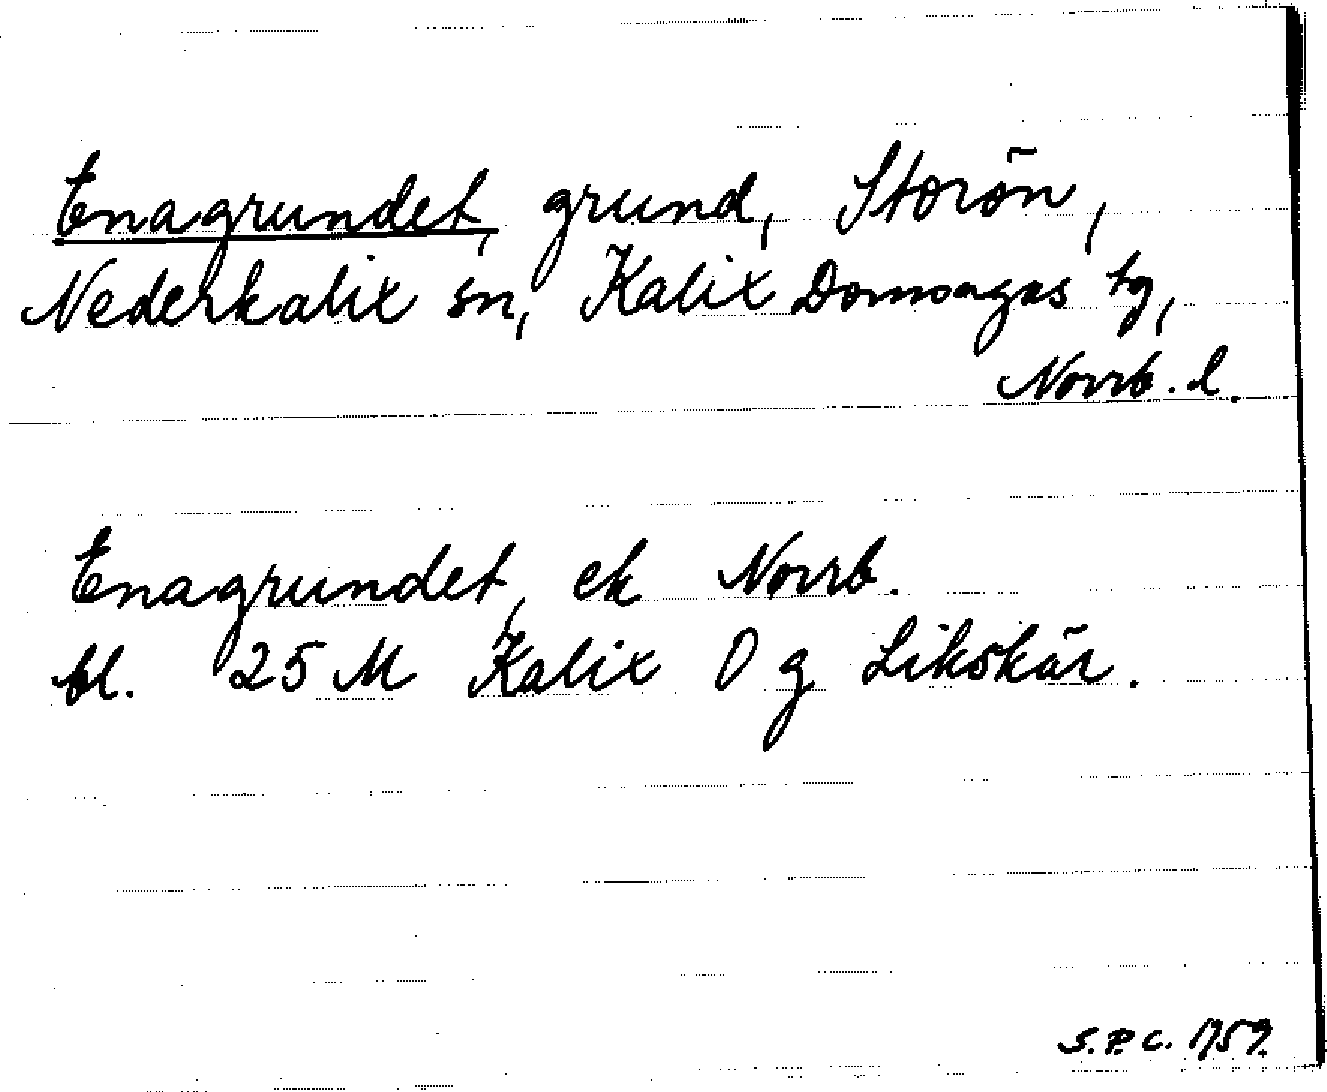 Enagrundet, grund, Storön,
Nederkalix sn, Kalix Domsagas tg,
Norrb. l.
Enagrundet, ek Norrb.
bl. 25 M Kalix O g Likskär.
S.P.C. 1959.